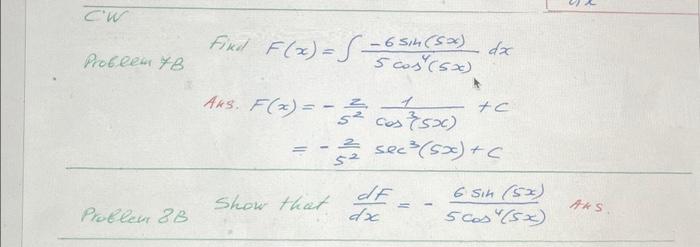 CW
Find F(x) = ∫ -6 sin(5x) / 5 cos⁴(5x) dx
Problem 7B
Ans. F(x) = - 2/5² 1/cos³(5x) + C
= - 2/5² sec³(5x) + C
Problem 8B Show that dF/dx = - 6 sin(5x) / 5 cos⁴(5x) Ans.